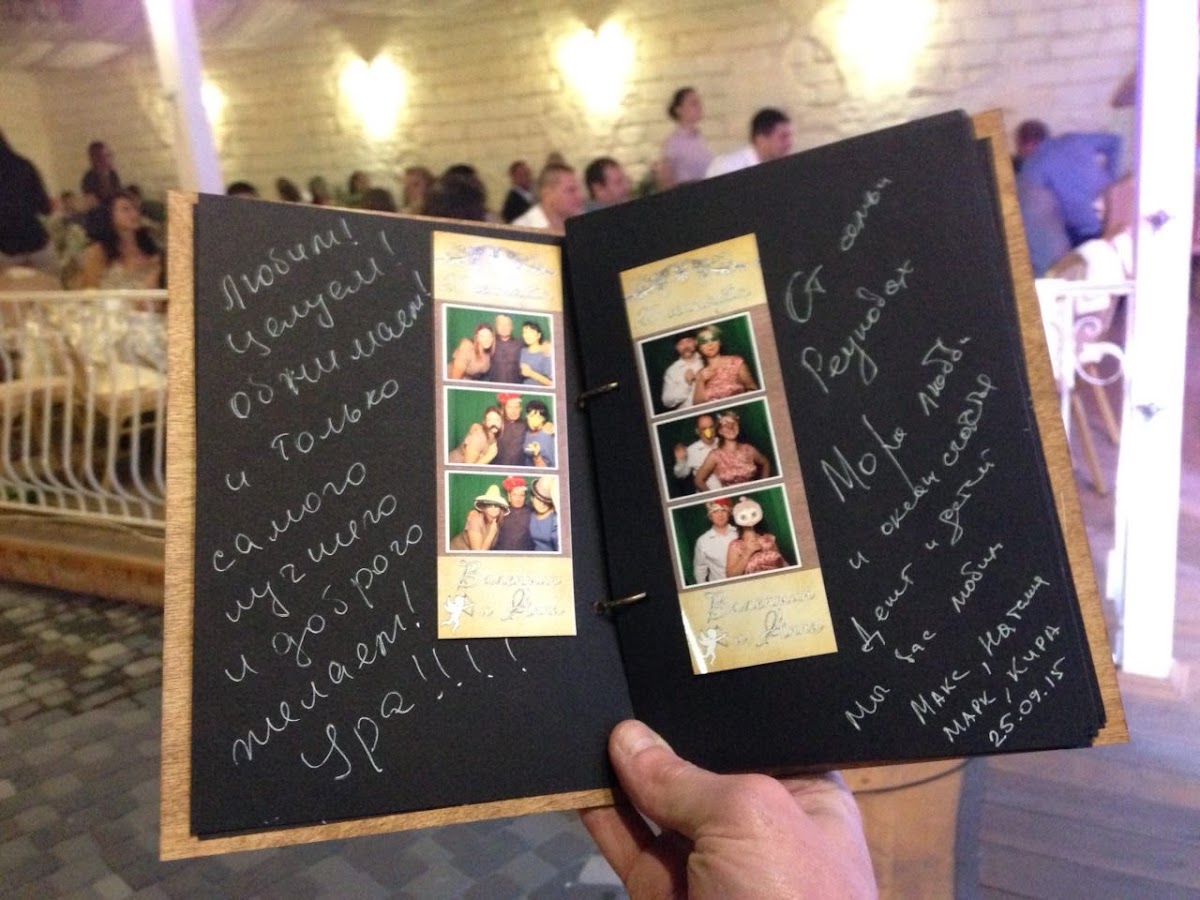 Любим!
целуем!
обнимаем!
и только
самого
лучшего
и доброго
желаем!
Ура!!!!
Валентин
и Анна
От семьи
Реуновах
Море любви
и океан счастья
Денег и детей
Мы вас любим
Макс, Наташа
Марк, Кира
25.09.15